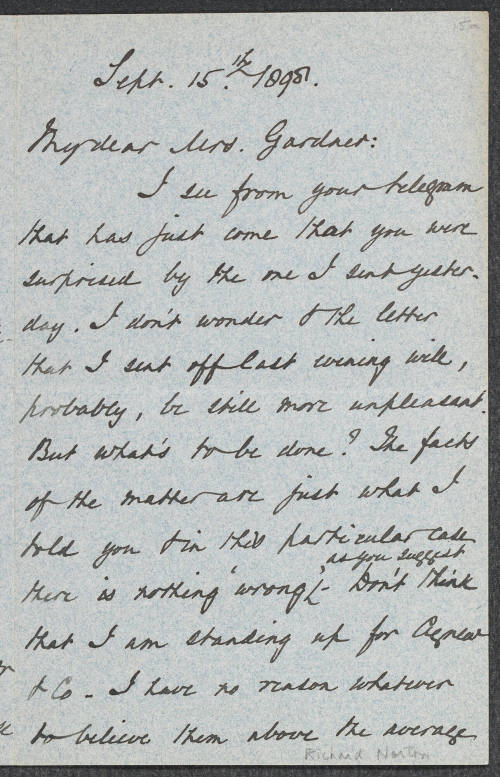 Sept. 15.th 1898.
My dear Mrs. Gardner:
I see from your telegram
that has just come that you were
surprised by the one I sent yester-
day. I don't wonder & the letter
that I sent off last evening will,
probably, be still more unpleasant.
But what's to be done? The facts
of the matter are just what I
told you & in this particular case
as you suggest
there is nothing 'wrong'. - Don't think
that I am standing up for Agnew
& Co - I have no reason whatever
to believe them above the average
Richard Norton